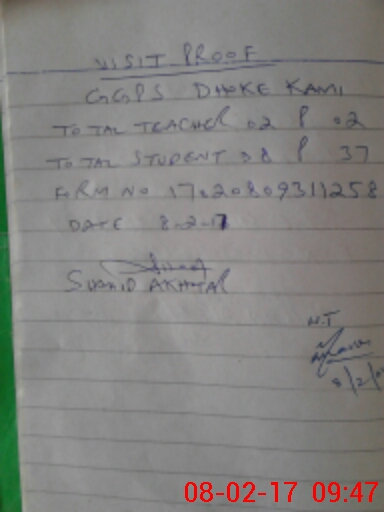 VISIT PROOF
GGPS DHOKE KAMI
TOTAL TEACHER 02 P 02
TOTAL STUDENT 38 P 37
FORM NO 17020809311258
DATE 8-2-17
AKHTAR
N.T
8/2/
08-02-17 09:47